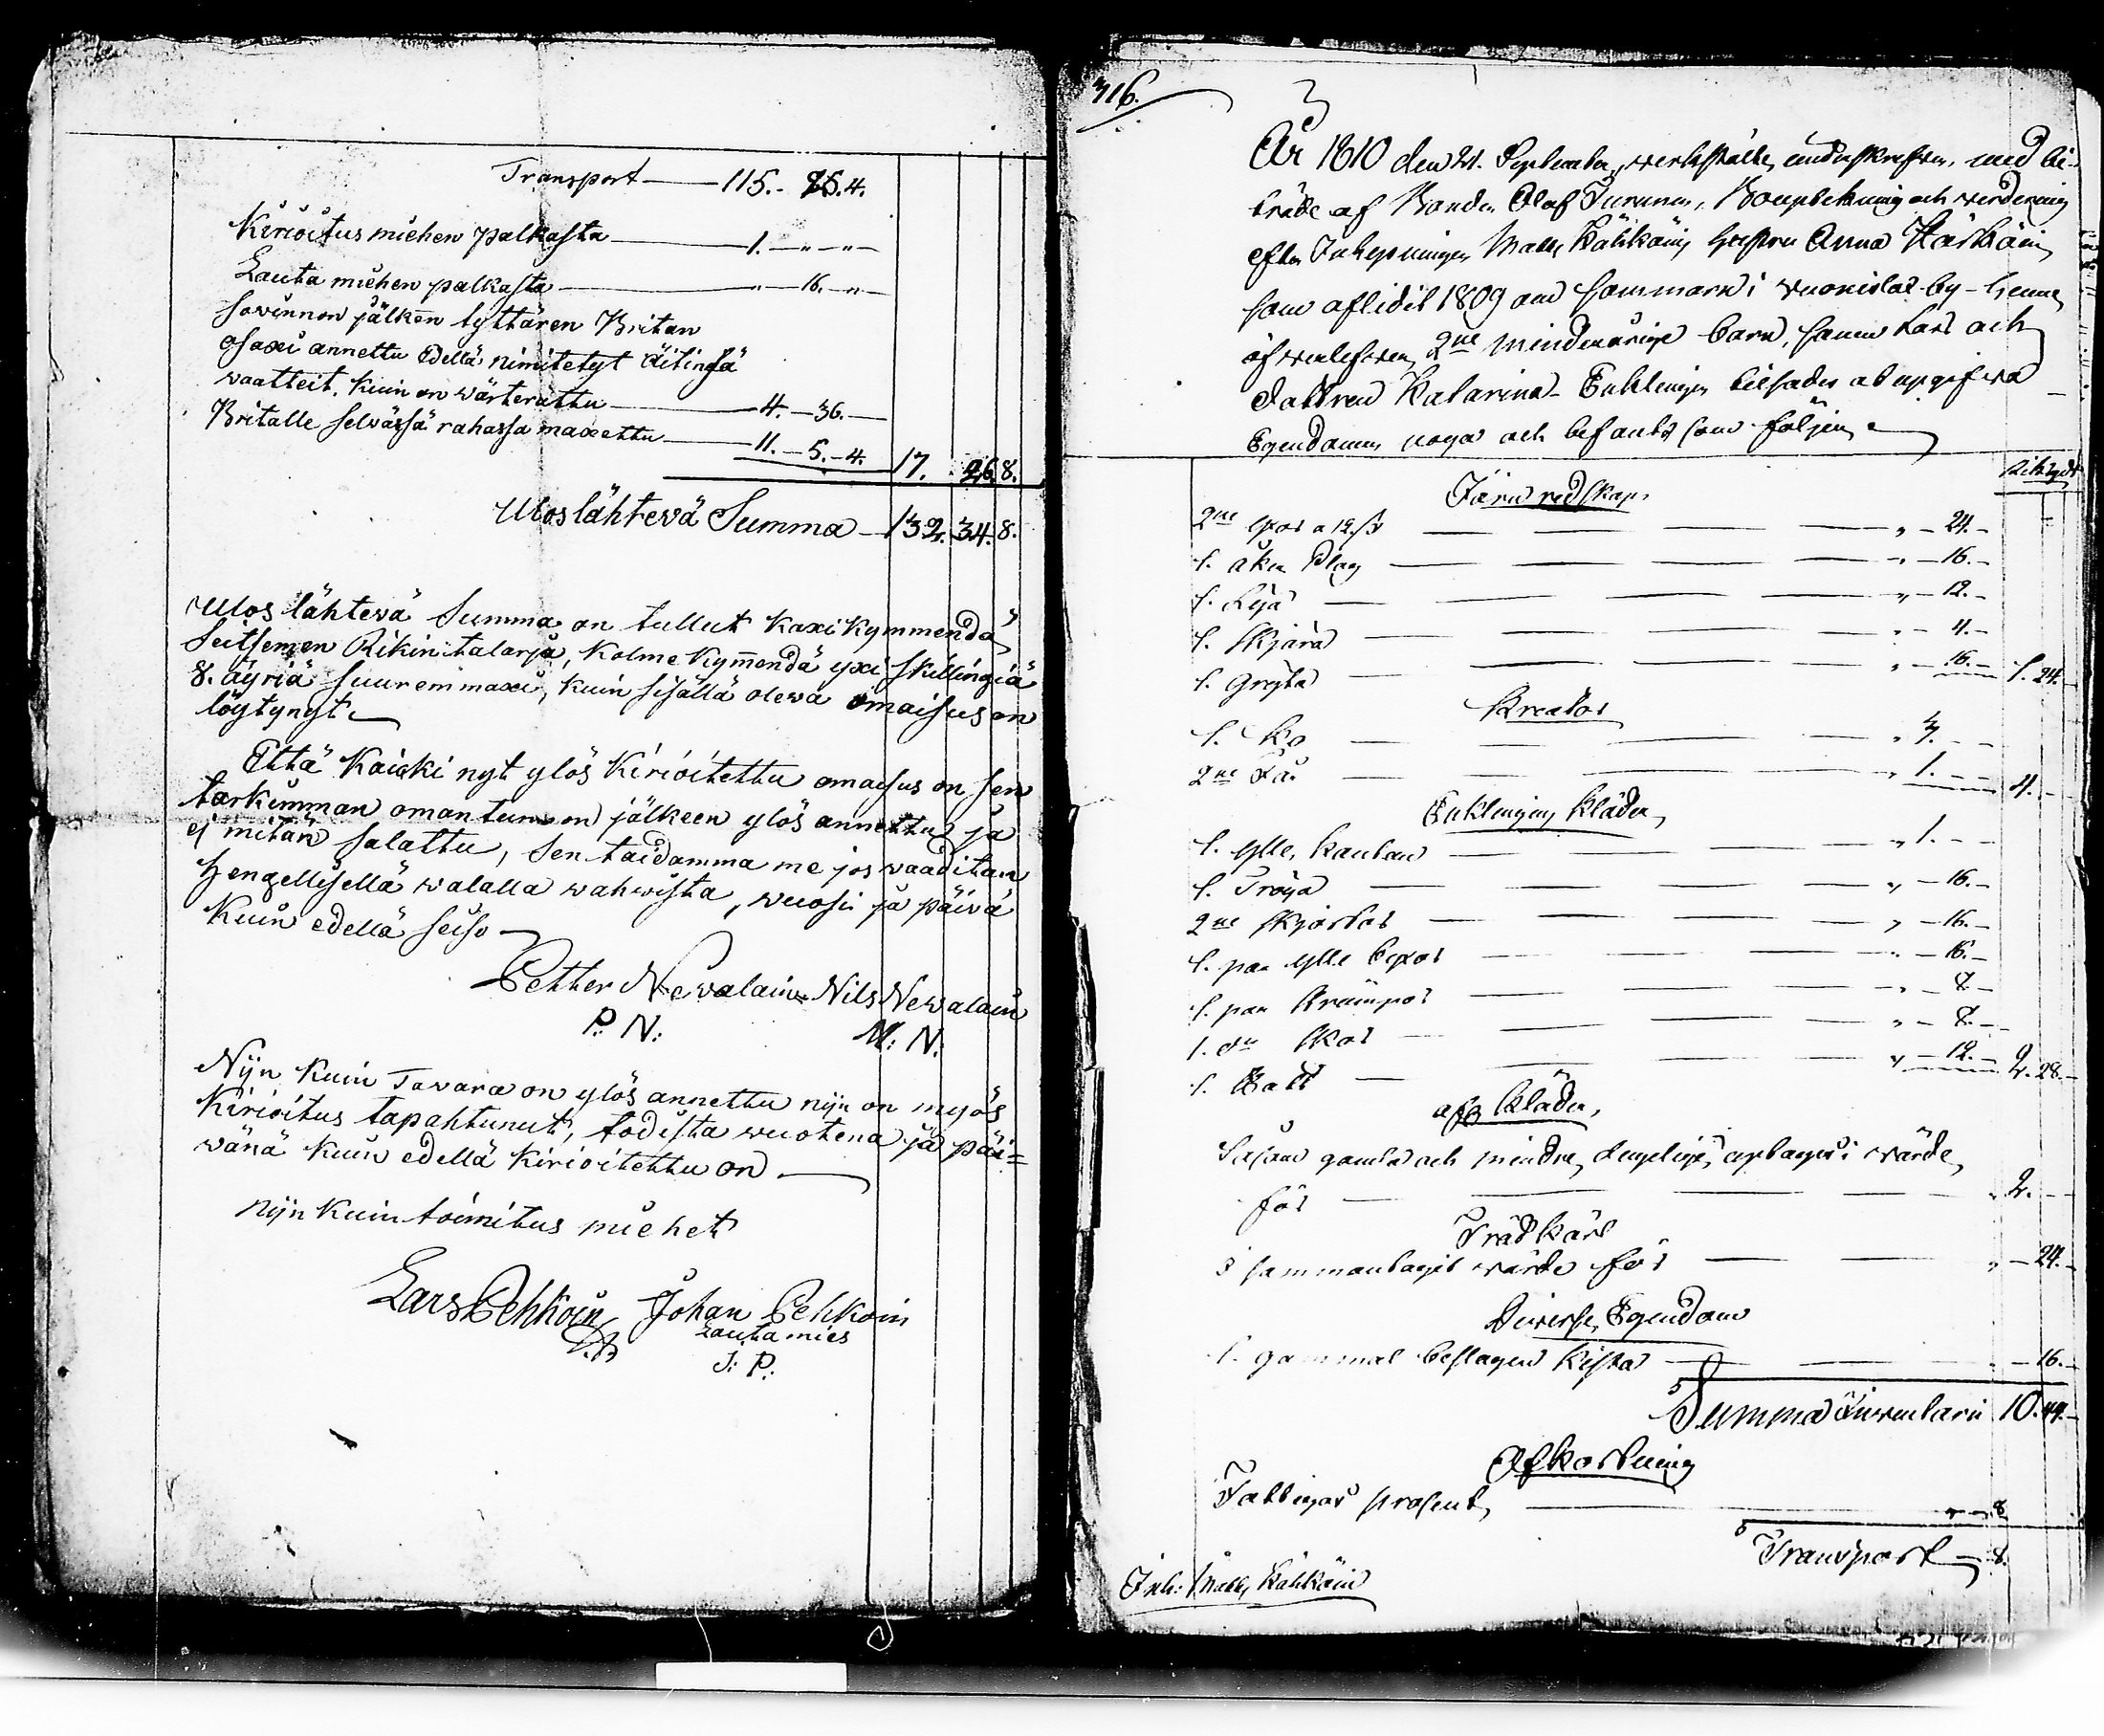 Transport — 115. — 25. 4.
Kirioitus miehen palkasta — 1. — „ — „ —
Lauta miehen palkasta — „ — 16. — „ —
sowinnon jälken tyttären Britan
osaxi annettu edellä nimitetyt äitinsä
waatteit, kuin on wärterattu — 4. — 36. —
Britalle selwässä rahassa maxettu — 11. — 5. — 4. 17. 26 8.
Ulos lähtevä Summa — 132. 34. 8.
Ulos lähtevä Summa on tullut kaxi kymmendä
seitsemen Rikinitalarja, kolme kym̄endä yxi skillingiä
8. äyriä suuremmaxi, kuin sisällä olewa omaisus on
löytynyt
Että kaicki nyt ylös kirioitettu omaisus on sen
tarkimman omantunnon jälkeen ylös annettu ja
ej mitän salattu, sen taidamma me jos waaditan
hengellisellä walalla wahwista, wuosi ja päivä
kuin edellä seiso
Petter Newalain Nils Newalain
P: N: N: N:
Nijn kuin Tavara on ylös annettu nijn on myös
kirioitus tapahtunut, todista wuotena ja päi=
wänä kuin edellä kirioitettu on
nijn kuin toimitus miehet
Lars Pehkoin Johan Pehkoin
Lautamies
J: P:
316.
År 1810 den 21. September, werkstälte undeskrefven, med bi-
träde af Bonden Olof Turunen, Bouptekning och werdering
efter Inhysningen Matts Kähkäin, hustru Anna Kärkäin,
som aflidit 1809 om sommaren i Wuonislax by — henne
öfwerlefwer, 2ne minderårige barn, sonen Lars och
dottren Katarina — Enklingen tilsades at upgifwa
Egendomen noga och befants som följer,
Rikzgdr
Järn redskap,
2ne yxor a 12 s — „ — 24. —
1. åker Plog — „ — 16. —
1. Lija — „ — 12. —
1. skjära — „ — 4. —
1. gryta — „ — 16. — 1. 24. —
Kreatur
1. Ko — „ 3. — —
2ne Får — „ 1. — — 4. —
Enklingens Kläder,
1. ylle, kaftan — „ 1. — —
1. Tröya — „ — 16. —
2ne skjortor — „ — 16. —
1. par ylle byxor — „ — 16. —
1. par strumpor — „ — 8. —
1. do skor — „ — 8. —
1. Hatt — „ — 12. — 2. 28. —
Kläder,
gamla och mindre, uptages i wärde,
för — „ 2. — —
Trädkäril
i sammantagit wärde för — „ — 24. —
Diverse, Egendom
1. gammal beslagen kista — „ — 16. —
Summa Inventarii 10. 44. —
Afkortning
Fattigas prosent, — „ — 8.
Transport — 8.
Inh: Matts Kähkäin